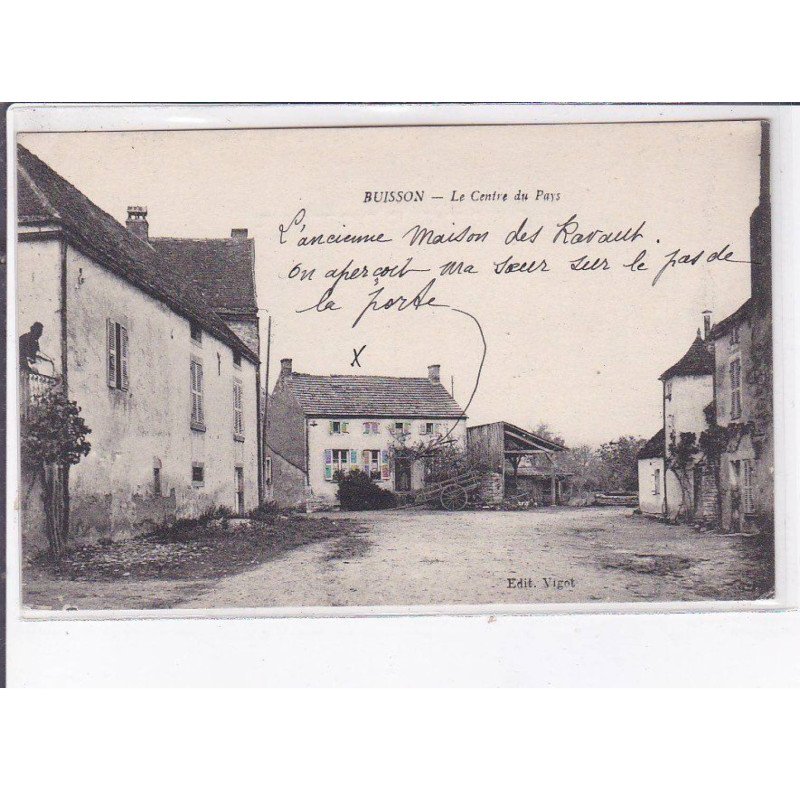 BUISSON — Le Centre du Pays
L'ancienne Maison des Ravaut.
on aperçoit ma sœur sur le pas de
la porte
X
Edit. Vigot